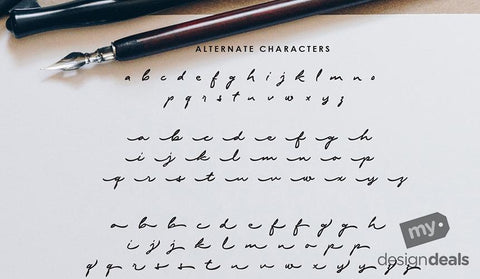 ALTERNATE CHARACTERS
a b c d e f g h i j k l m n o
p q r s t u v w x y z
a b c d e f g h
i j k l m n o p
q r s t u v w x y z
a b b c d e f f g g h
i j j k l m n o p p
q q r s t u v w x y y z
my
designdeals